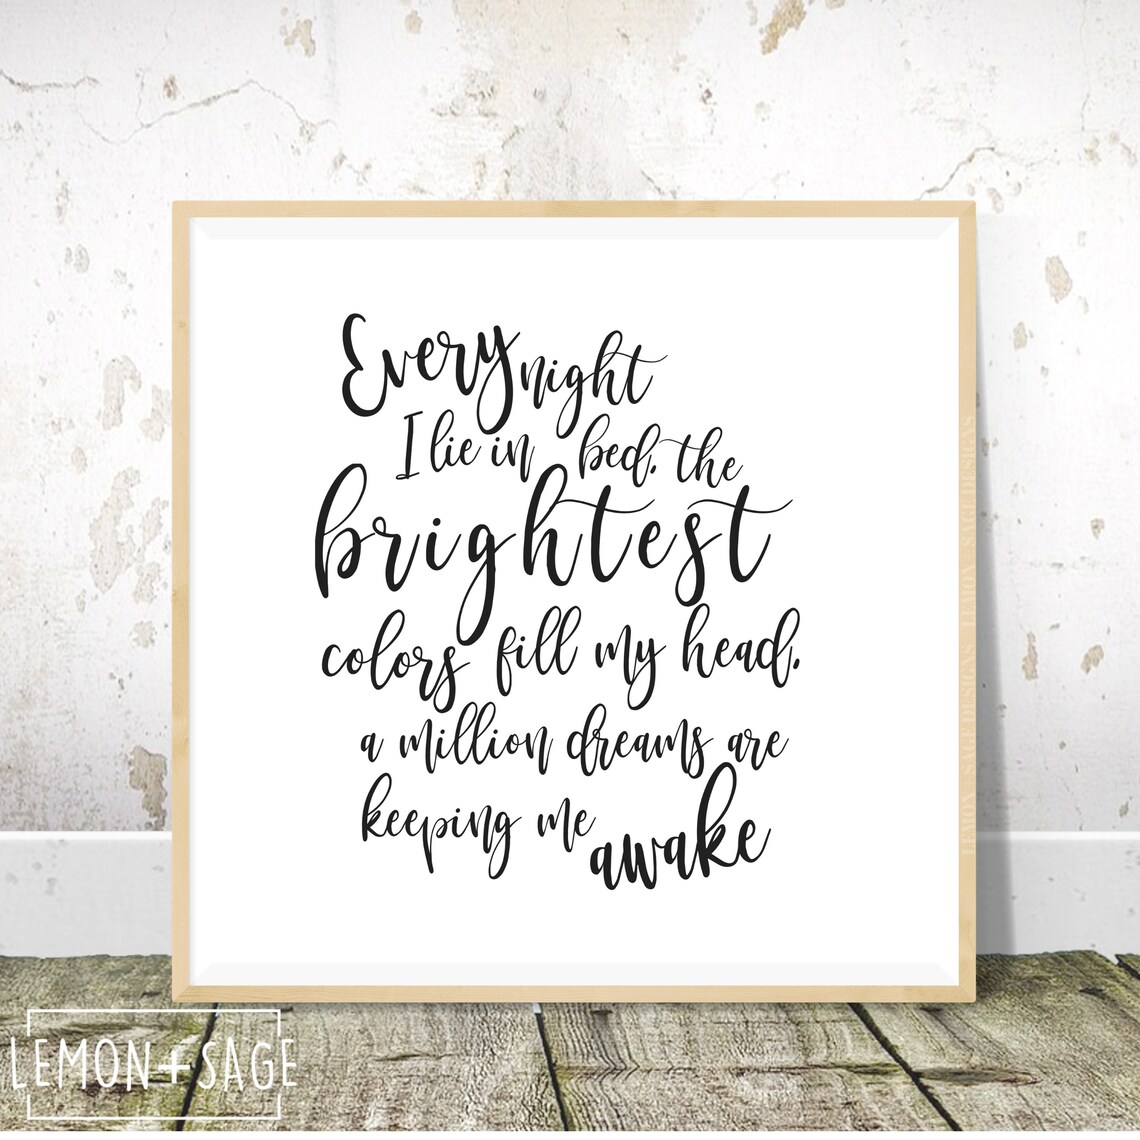 Every night
I lie in bed, the
brightest
colors fill my head,
a million dreams are
keeping me awake
LEMON+SAGE
LEMON SAGE DESIGNS LEMON SAGE DESIGNS